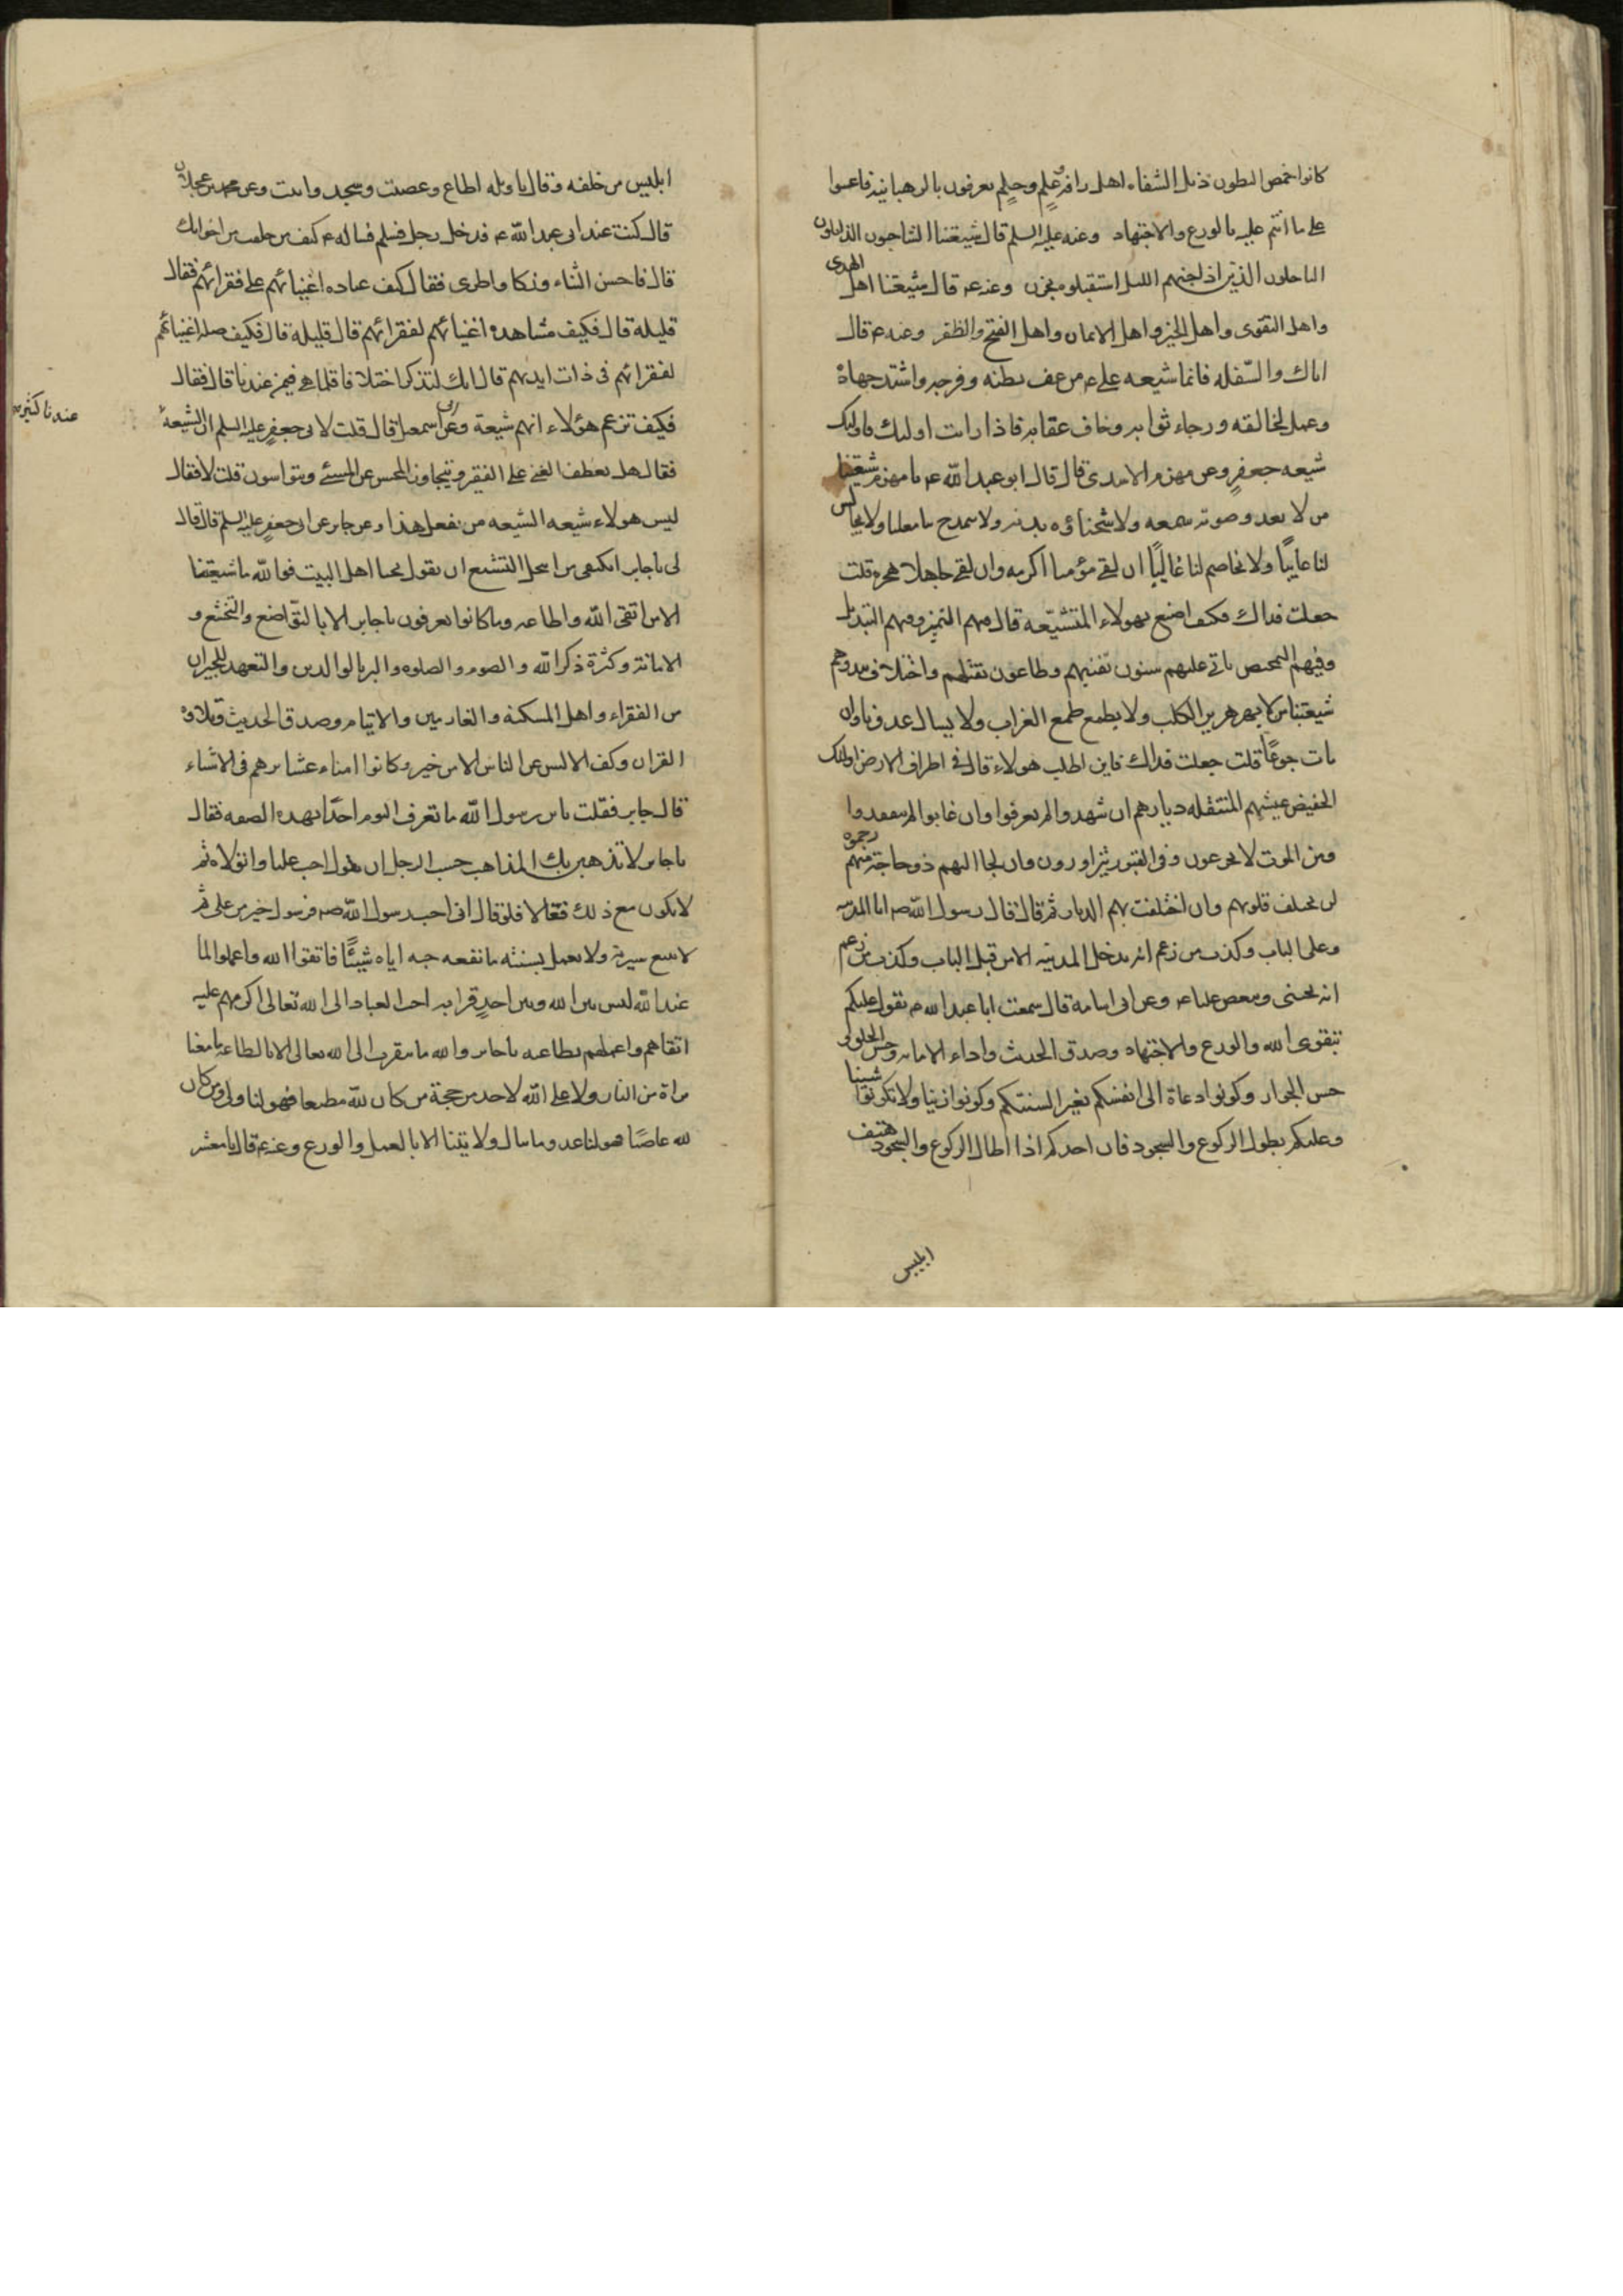 كانوا خمص البطون ذبل الشفاه اهل رافة وعلم وحلم يعرفون بالرهبانية فاعينوا
على ما انتم عليه بالورع والاجتهاد وعنه عليه السلم قال شيعتنا الشاحبون الذابلون
الناحلون الذين اذا جنهم الليل استقبلوه بحزن وعنه ع قال شيعتنا اهل الهدى
واهل التقوى واهل الخير واهل الايمان واهل الفتح والظفر وعنه ع قال
اياك والسفله فانما شيعه على ع من عف بطنه وفرجه واشتد جهاده
وعمل لخالقه ورجاء ثوابه وخاف عقابه فاذا رايت اوليك فاوليك
شيعه جعفر وعن مهزم الاسدى قال قال ابو عبد الله ع يا مهزم شيعتنا
من لا يعد وصوته سمعه ولا شحناؤه بدنه ولا يمدح بنا معلنا ولا يجالس
لنا عايبا ولا يخاصم لنا غاليا ان لقى مؤمنا اكرمه وان لقى جاهلا هجره قلت
جعلت فداك فكيف اصنع بهولاء المتشيعه قال فيهم التميز وفيهم التبديل
وفيهم التمحيص ياتى عليهم سنون تفنيهم وطاعون تقتلهم واختلاف يبددهم
شيعتنا من لا يهر هرير الكلب ولا يطمع طمع الغراب ولا يسال عدونا وان
مات جوعا قلت جعلت فداك فاين اطلب هولاء قال فى اطراف الارض اوليك
الخفيض عيشهم المنتقله ديارهم ان شهدوا لم يعرفوا وان غابوا لم يفقدوا
ومن الموت لا يجزعون وفى القبور يتزاورون وان لجا اليهم ذو حاجة منهم رحموه
لن يختلف قلوبهم وان اختلفت بهم الديار ثم قال قال رسول الله صه انا المدينه
وعلى الباب وكذب من زعم انه يدخل المدينه الا من قبل الباب وكذب من زعم
انه يحبنى ويبغض عليا ع وعن ابى اسامة قال سمعت ابا عبد الله ع يقول عليكم
بتقوى الله والورع والاجتهاد وصدق الحديث واداء الامانه وحسن الخلق و
حسن الجوار وكونوا دعاة الى انفسكم بغير السنتكم وكونوا زينا ولا تكونوا شينا
وعليكم بطول الركوع والسجود فان احدكم اذا اطال الركوع والسجود هتف
ابليس
ابليس من خلفه وقال يا ويله اطاع وعصيت وسجد وابيت وعن محمد بن عجلان
قال كنت عند ابى عبد الله ع فدخل رجل فسلم فساله ع كيف من خلفت من اخوانك
قال فاحسن الثناء وزكا واطرى فقال كيف عياده اغنيائهم على فقرائهم فقال
قليلة قال فكيف مشاهده اغنيائهم لفقرائهم قال قليلة قال فكيف صله اغنيائهم
لفقرائهم فى ذات ايديهم قال انك لتذكر اخلاقا قلما هى فيمن عندنا قال فقال
فكيف تزعم هؤلاء انهم شيعة وعن ابى اسمعيل قال قلت لابى جعفر عليه السلم ان الشيعة
عندنا كثيره
فقال هل يعطف الغنى على الفقير ويتجاوز المحسن عن المسئ ويتواسون قلت لا فقال
ليس هولاء شيعه الشيعه من يفعل هذا وعن جابر عن ابى جعفر عليه السلم قال قال
لى يا جابر ايكتفى من انتحل التشيع ان يقول بحبنا اهل البيت فوالله ما شيعتنا
الا من اتقى الله واطاعه وما كانوا يعرفون يا جابر الا بالتواضع والتخشع و
الامانة وكثرة ذكر الله والصوم والصلوه والبر بالوالدين والتعهد للجيران
من الفقراء واهل المسكنه والغارمين والايتام وصدق الحديث وتلاوة
القران وكف الالسن عن الناس الا من خير وكانوا امناء عشائرهم فى الاشياء
قال جابر فقلت يا بن رسول الله ما نعرف اليوم احدا بهذه الصفه فقال
يا جابر لا تذهبن بك المذاهب حسب الرجل ان يقول احب عليا واتولاه ثم
لا يكون مع ذلك فعالا فلو قال انى احب رسول الله صه فرسول خير من على ثم
لا يتبع سيرته ولا يعمل بسنته ما نفعه حبه اياه شيئا فاتقوا الله واعملوا لما
عند الله ليس بين الله وبين احد قرابه احب العباد الى الله تعالى اكرمهم عليه
اتقاهم واعملهم بطاعته يا جابر والله ما يتقرب الى الله تعالى الا بالطاعه ما معنا
براة من النار ولا على الله لاحد من حجة من كان لله مطيعا فهو لنا ولى ومن كان
لله عاصيا فهو لنا عدو وما ينال ولايتنا الا بالعمل والورع وعنه ع قال يا معشر